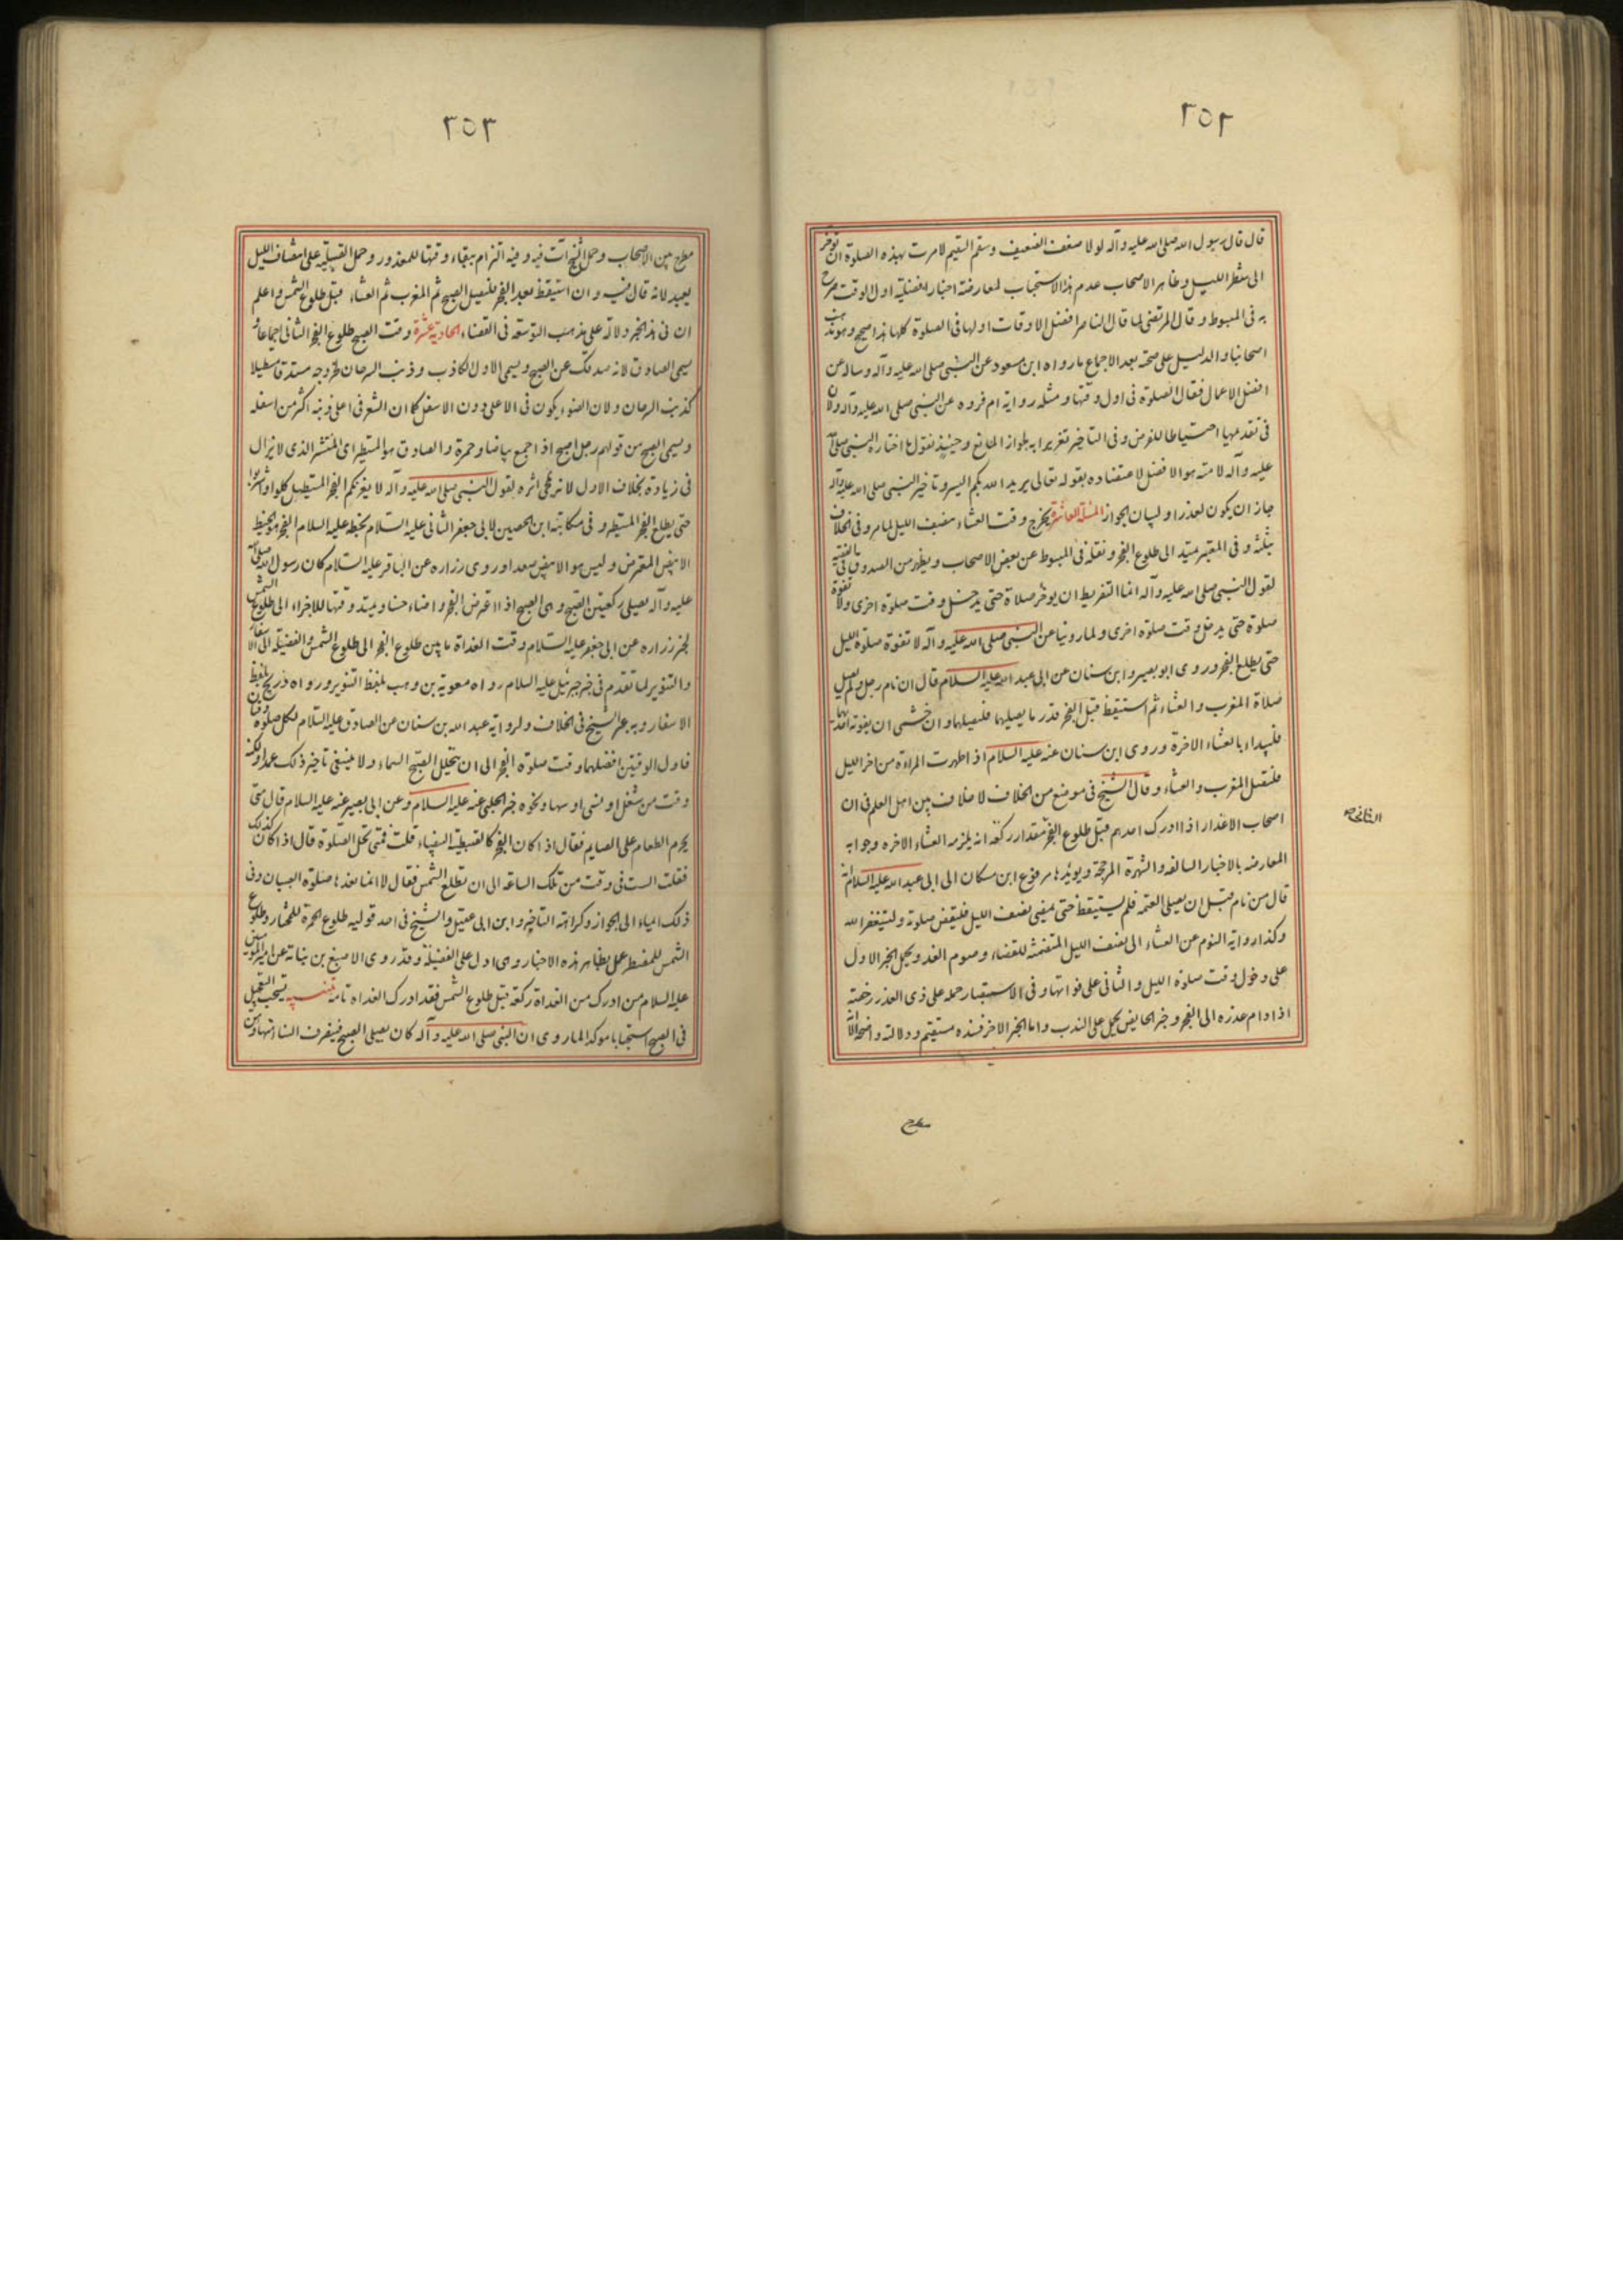 ٢٥٢
قال قال رسول الله صلى الله عليه وآله لولا ضعف الضعيف وسقم السقيم لامرت بهذه الصلوة ان توخر
الى شطر الليل وظاهر الاصحاب عدم هذا الاستحباب لمعارضة اخبار افضلية اول الوقت صرح
به فى المبسوط وقال المرتضى لما قال الناصر افضل الاوقات اولها فى الصلوة كلها هذا صحيح وهو مذهب
اصحابنا والدليل على صحته بعد الاجماع ما رواه ابن مسعود عن النبى صلى الله عليه وآله وساله عن
افضل الاعمال فقال الصلوة فى اول وقتها ومثله رواية ام فروه عن النبى صلى الله عليه وآله ولان
فى تقديمها احتياطا للفرض وفى التاخير تغريرا به لجواز المانع وحينئذ نقول ما اختاره النبى صلى الله
عليه وآله لامته هو الافضل لاعتضاده بقوله تعالى يريد الله بكم اليسر وتاخير النبى صلى الله عليه وآله
جاز ان يكون لعذر او لبيان الجواز المسئلة العاشرة يخرج وقت العشاء بنصف الليل لما مر وفى الخلاف
بثلثه وفى المعتبر يمتد الى طلوع الفجر ونقله فى المبسوط عن بعض الاصحاب ويظهر من الصدوق فى الفقيه
لقول النبى صلى الله عليه وآله انما التفريط ان يوخر صلاة حتى يدخل وقت صلوة اخرى ولا تفوت
صلوة حتى يدخل وقت صلوة اخرى ولما روينا عن النبى صلى الله عليه وآله لا تفوة صلوة الليل
حتى يطلع الفجر وروى ابو بصير وابن سنان عن ابى عبد الله عليه السلام قال ان نام رجل ولم يصل
صلاة المغرب والعشاء ثم استيقظ قبل الفجر قدر ما يصليهما فليصليهما وان خشى ان يفوته احدهما
فليبداء بالعشاء الاخرة وروى ابن سنان عنه عليه السلام اذا طهرت المراة من اخر الليل
فلتصل المغرب والعشاء وقال الشيخ فى موضع من الخلاف لا خلاف بين اهل العلم فى ان
اصحاب الاعذار اذا ادرك احدهم قبل طلوع الفجر مقدار ركعة انه يلزمه العشاء الاخره وجوابه
المعارضه بالاخبار السالفه والشهرة المرجحة ويويدها مرفوع ابن مسكان الى ابى عبد الله عليه السلام انه
قال من نام قبل ان يصلى العتمه فلم يستيقظ حتى يمضى نصف الليل فليقض صلوته وليستغفر الله
وكذا رواية النوم عن العشاء الى نصف الليل المتضمنة للقضاء وصوم الغد ويحمل الخبر الاول
على دخول وقت صلوة الليل والثانى على فواتها وفى الاستبصار حمله على ذى العذر رخصته
اذا دام عذره الى الفجر وخبر الحايض يحمل على الندب واما الخبر الاخر فسنده مستقيم ودلالته واضحة الا انه
مطرح
٢٥٣
مطرح بين الاصحاب وحمل الشيخ آت فيه وفيه التزام ببقاء وقتها للمعذور وحمل القبلية على انتصاف الليل
بعيد لانه قال فيه وان استيقظ بعد الفجر فليصل الصبح ثم المغرب ثم العشاء قبل طلوع الشمس واعلم
ان فى هذا الخبر دلالة على مذهب التوسعة فى القضاء الحادية عشرة وقت الصبح طلوع الفجر الثانى اجماعا
يسمى الصادق لانه صدقك عن الصبح ويسمى الاول الكاذب وذنب السرحان لخروجه مستدقا مستطيلا
كذنب السرحان ولان الضوء يكون فى الاعلى دون الاسفل كما ان الشعر فى اعلى ذنبه اكثر من اسفله
ويسمى الصبح من قولهم رجل اصبح اذا جمع بياضا وحمرة والصادق هو المستطير اى المنتشر الذى لا يزال
فى زيادة بخلاف الاول لانه يمحى اثره لقول النبى صلى الله عليه وآله لا يغرنكم الفجر المستطيل كلوا واشربوا
حتى يطلع الفجر المستطير وفى مكاتبة ابن الحصين لابى جعفر الثانى عليه السلام بخطه عليه السلام الفجر هو الخيط
الابيض المعترض وليس هو الابيض صعدا وروى زراره عن الباقر عليه السلام كان رسول الله صلى الله
عليه وآله يصلى ركعتين الصبح وهى الصبح اذا اعترض الفجر واضاء حسنا ويمتد وقتها للاجزاء الى طلوع الشمس
لخبر زراره عن ابى جعفر عليه السلام وقت الغداة ما بين طلوع الفجر الى طلوع الشمس والفضيلة الى الاسفار
والتنوير لما تقدم فى خبر جبرئيل عليه السلام رواه معوية بن وهب بلفظ التنوير ورواه ذريح بلفظ
الاسفار وبه عبر الشيخ فى الخلاف ولرواية عبد الله بن سنان عن الصادق عليه السلام لكل صلوة وقتان
فاول الوقتين افضلهما وقت صلوة الفجر الى ان يتجلل الصبح السماء ولا ينبغى تاخير ذلك عمدا ولكنه
وقت من شغل او نسى او سها ونحوه خبر الحلبى عنه عليه السلام وعن ابى بصير عنه عليه السلام قال متى
يحرم الطعام على الصايم فقال اذا كان الفجر كالقبطية البيضاء قلت فمتى تحل الصلوة قال اذا كان كذلك
فقلت الست فى وقت من تلك الساعة الى ان تطلع الشمس فقال لا انما نعدها صلوة الصبيان وفى
ذلك ايماء الى الجواز وكراهة التاخير وابن ابى عقيل والشيخ فى احد قوليه طلوع الحمرة للمختار وطلوع
الشمس للمضطر عمل بظاهر هذه الاخبار وهى ادل على الفضيلة وقد روى الاصبغ بن نباتة عن امير المومنين
عليه السلام من ادرك من الغداة ركعة قبل طلوع الشمس فقد ادرك الغداه تامة تنبيه يستحب التعجيل
فى الصبح استحبابا موكدا لما روى ان النبى صلى الله عليه وآله كان يصلى الصبح فينصرف النساء